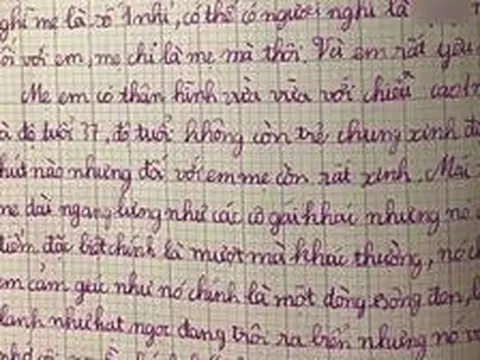 nghĩ mẹ là xô Inhi, có thể có người nghĩ là
ối với em, mẹ chỉ là mẹ mà thôi. Và em rất yêu
Mẹ em có thân hình vừa vừa với chiều cao
à độ tuổi 37, độ tuổi không còn trẻ chung xinh
hút nào nhưng đối với em mẹ còn rất xinh. Mái
mẹ dài ngang lưng như các cô gái khác nhưng nó
điểm đặc biệt chính là mượt mà khác thường, nó
em cảm giác như nó chính là một dòng sông đen,
lanh như hạt ngọc đang trôi ra biển nhưng nó